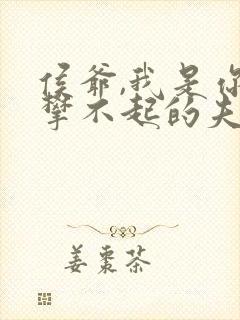 侯爷,我是你
攀不起的夫
姜枣茶